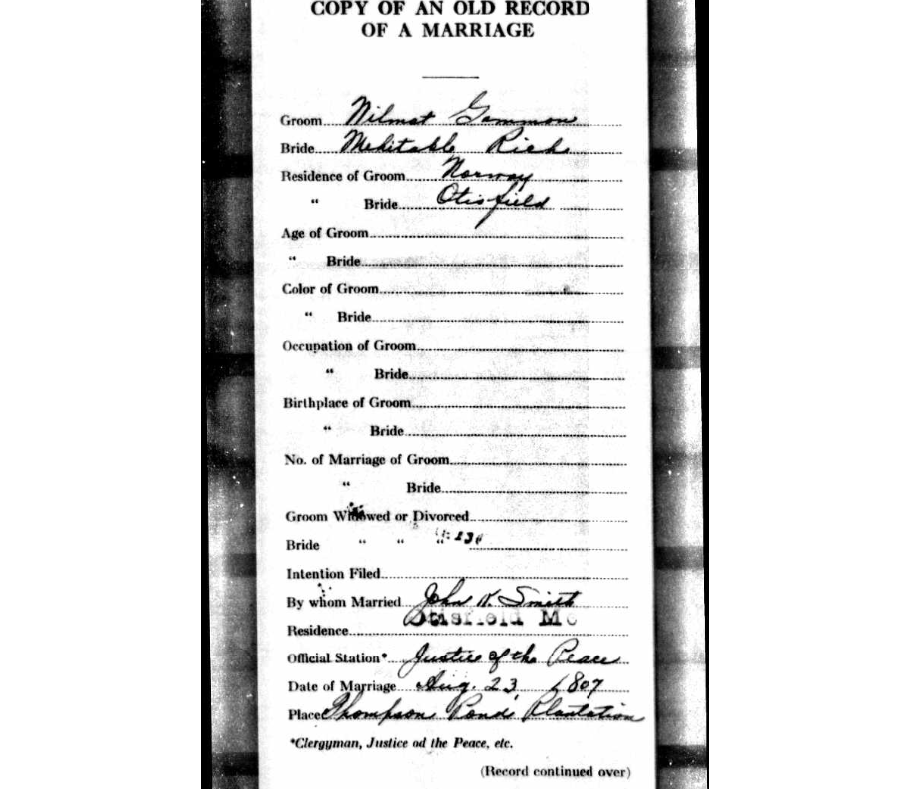 COPY OF AN OLD RECORD
OF A MARRIAGE
Groom Wilmot Gammon
Bride Mehitable Rich
Residence of Groom Norway
" Bride Otisfield
Age of Groom
" Bride
Color of Groom
" Bride
Occupation of Groom
" Bride
Birthplace of Groom
" Bride
No. of Marriage of Groom
" Bride
Groom Widowed or Divorced
Bride " " "
Intention Filed
By whom Married John K. Smith
Residence Otisfield Me
Official Station* Justice of the Peace
Date of Marriage Aug. 23, 1807
Place Thompson Pond Plantation
*Clergyman, Justice od the Peace, etc.
(Record continued over)